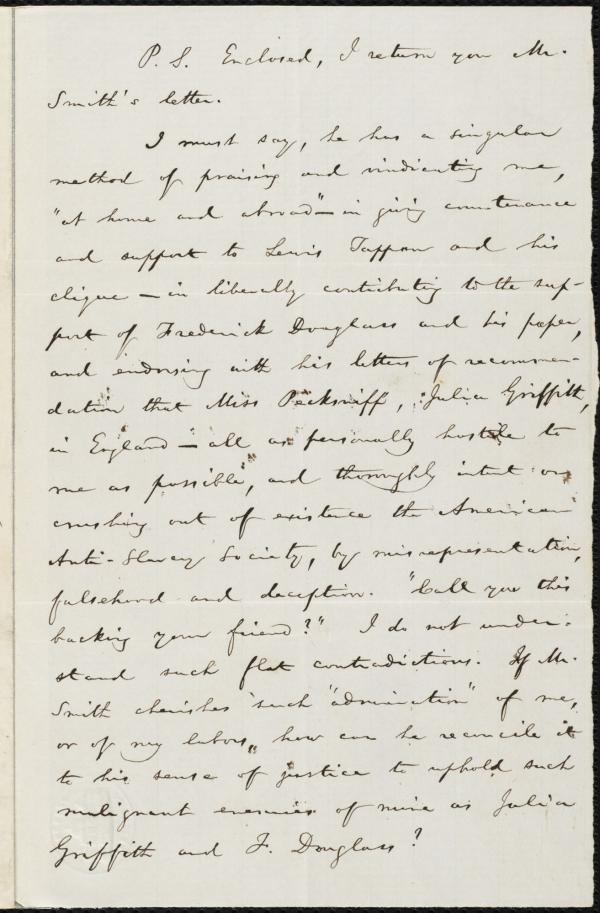 P. S. Enclosed, I return you Mr.
Smith's letter.
I must say, he has a singular
method of praising and vindicating me,
"at home and abroad"—in giving countenance
and support to Lewis Tappan and his
clique—in liberally contributing to the sup-
port of Frederick Douglass and his paper,
and endorsing with his letters of recommen-
dation that Miss Pecksniff, Julia Griffith,
in England—all as personally hostile to
me as possible, and thoroughly intent on
crushing out of existence the American
Anti-Slavery Society, by misrepresentation,
falsehood and deception. "Call you this
backing your friend?" I do not under-
stand such flat contradictions. If Mr.
Smith cherishes such "admiration" of me,
or of my labors, how can he reconcile it
to his sense of justice to uphold such
malignant enemies of mine as Julia
Griffith and F. Douglass?